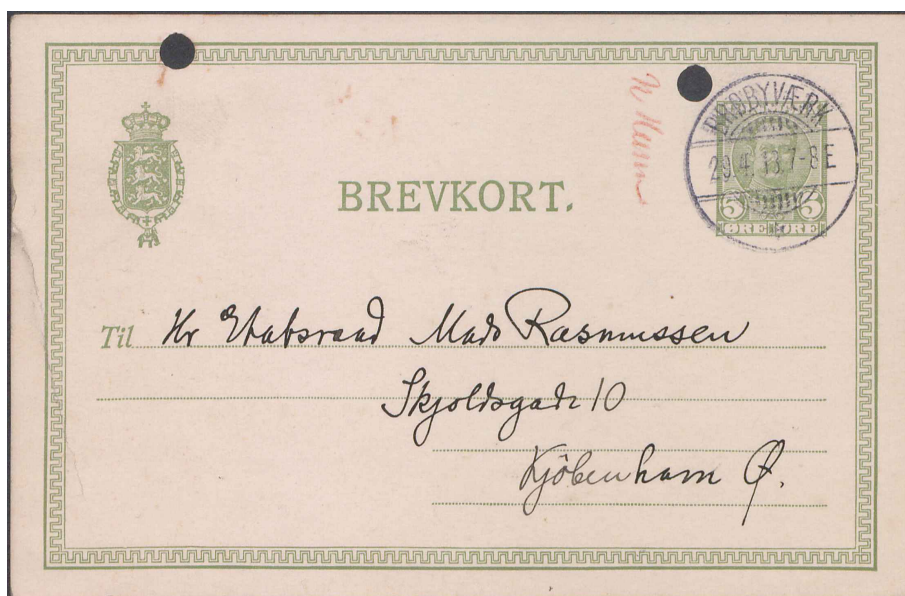 BREVKORT.
BRØBYVÆRK
29.4.13.7-8E
5 5
ØRE ØRE
Til Hr Etatsraad Mads Rasmussen
Skjoldsgade 10
Kjöbenhavn Ø.